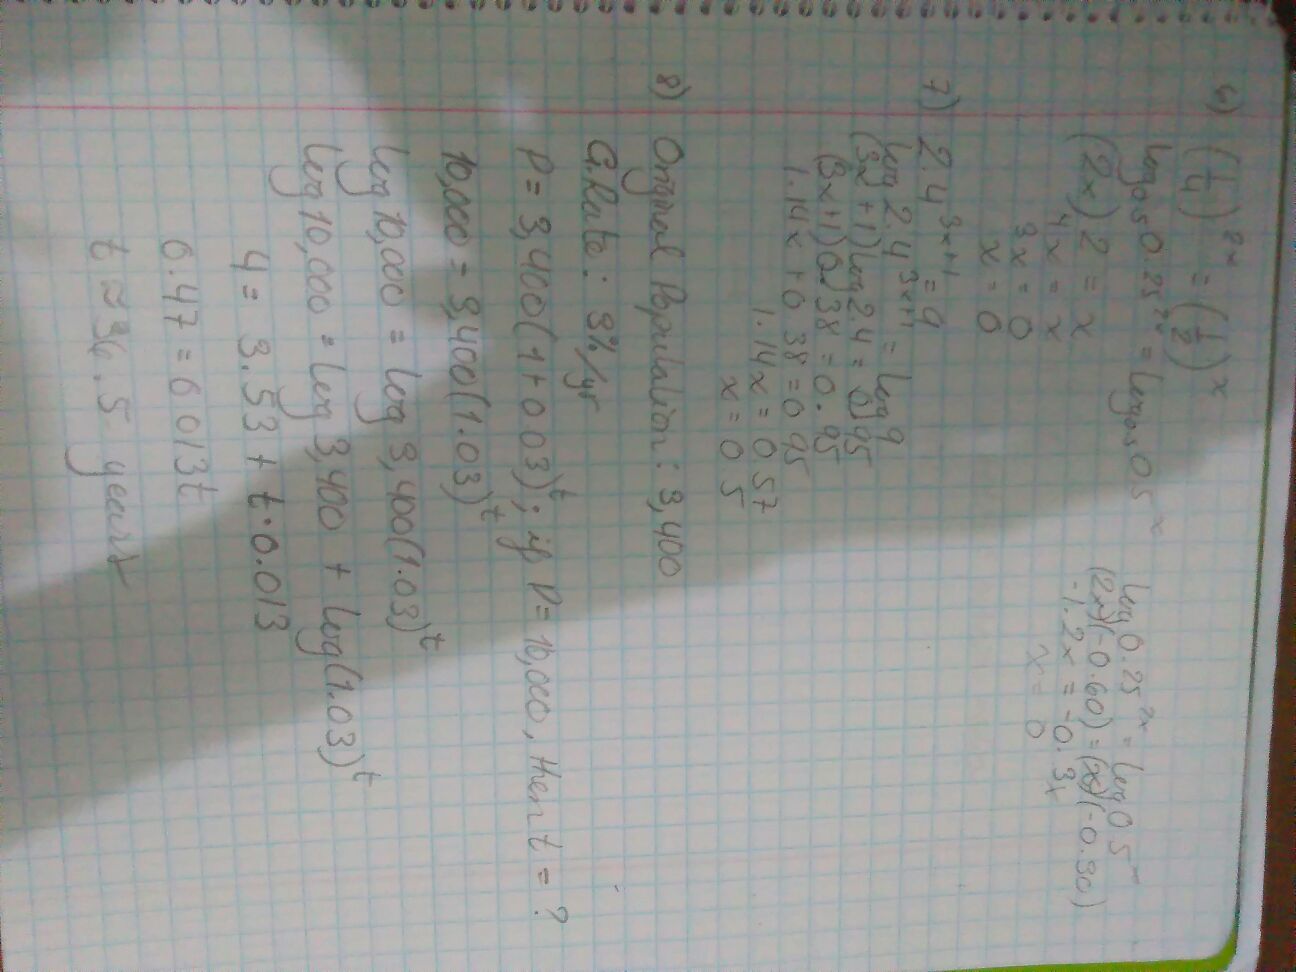 6) (1/4)^2x = (1/2)^x
log0.5 0.25^2x = log0.5 0.5^x
(2x)2 = x
4x = x
3x = 0
x = 0
log 0.25^2x = log 0.5^x
(2x)(-0.60) = (x)(-0.30)
-1.2x = -0.3x
x = 0
7) 2.4^3x+1 = 9
log 2.4^3x+1 = log 9
(3x+1)log 2.4 = 0.95
(3x+1)0.38 = 0.95
1.14x + 0.38 = 0.95
1.14x = 0.57
x = 0.5
8) Original Population: 3,400
G.Rate: 3%/yr
P = 3,400(1+0.03)^t; if P = 10,000, then t = ?
10,000 = 3,400(1.03)^t
log 10,000 = log 3,400(1.03)^t
log 10,000 = log 3,400 + log(1.03)^t
4 = 3.53 + t·0.013
0.47 = 0.013t
t ≈ 36.5 years